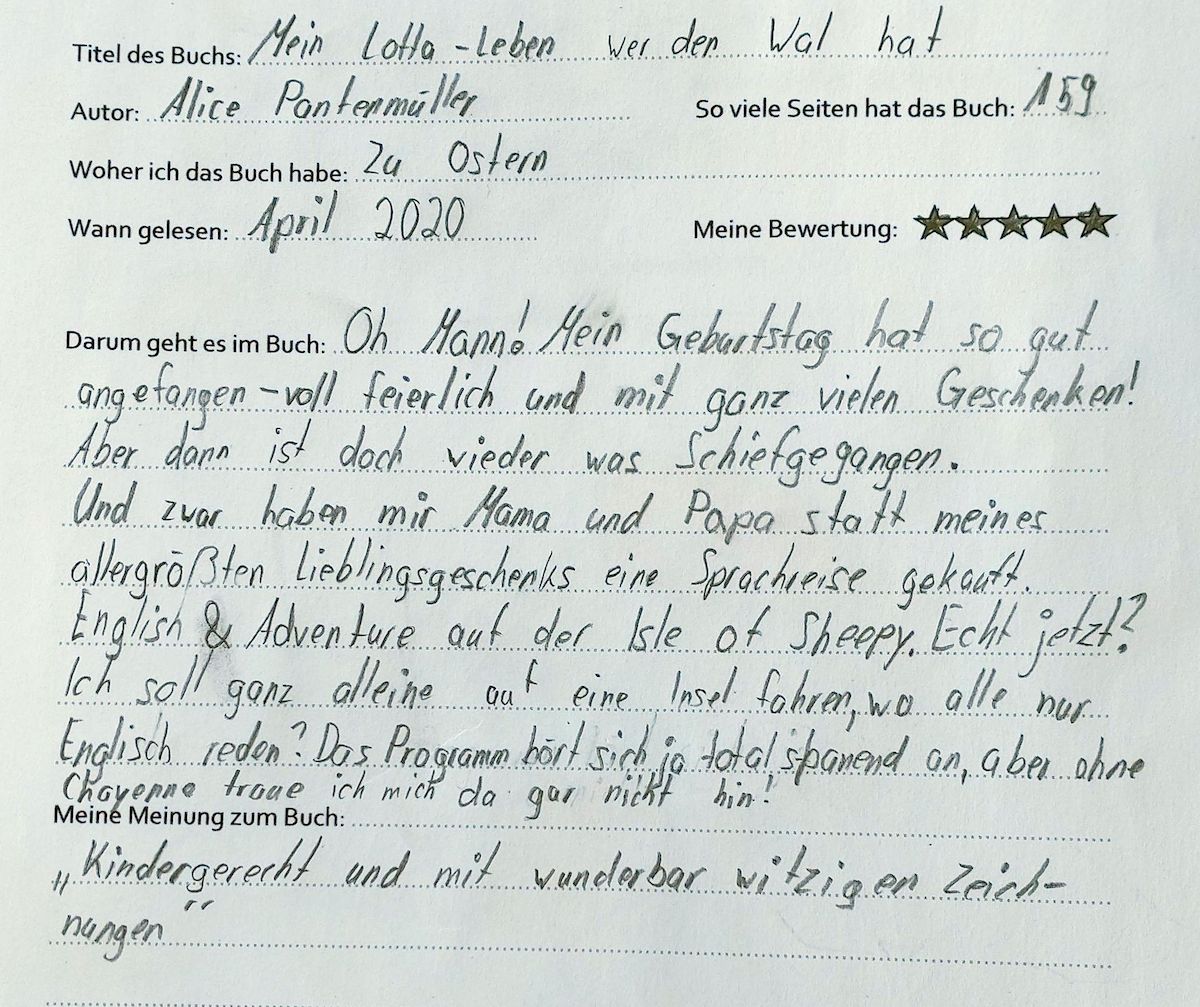 Titel des Buchs: Mein Lotta-Leben wer den Wal hat
Autor: Alice Pantermüller So viele Seiten hat das Buch: 159
Woher ich das Buch habe: Zu Ostern
Wann gelesen: April 2020 Meine Bewertung: ★★★★★
Darum geht es im Buch: Oh Mann! Mein Geburtstag hat so gut
angefangen – voll feierlich und mit ganz vielen Geschenken!
Aber dann ist doch vieder was Schiefgegangen.
Und zwar haben mir Mama und Papa statt meines
allergrößten Lieblingsgeschenks eine Sprachreise gekauft.
English & Adventure auf der Isle of Sheepy. Echt jetzt?
Ich soll ganz alleine auf eine Insel fahren, wo alle nur
Englisch reden? Das Programm hört sich ja total spanend an, aber ohne
Chayenne traue ich mich da gar nicht hin!
Meine Meinung zum Buch:
„Kindergerecht und mit wunderbar witzigen Zeich-
nungen“